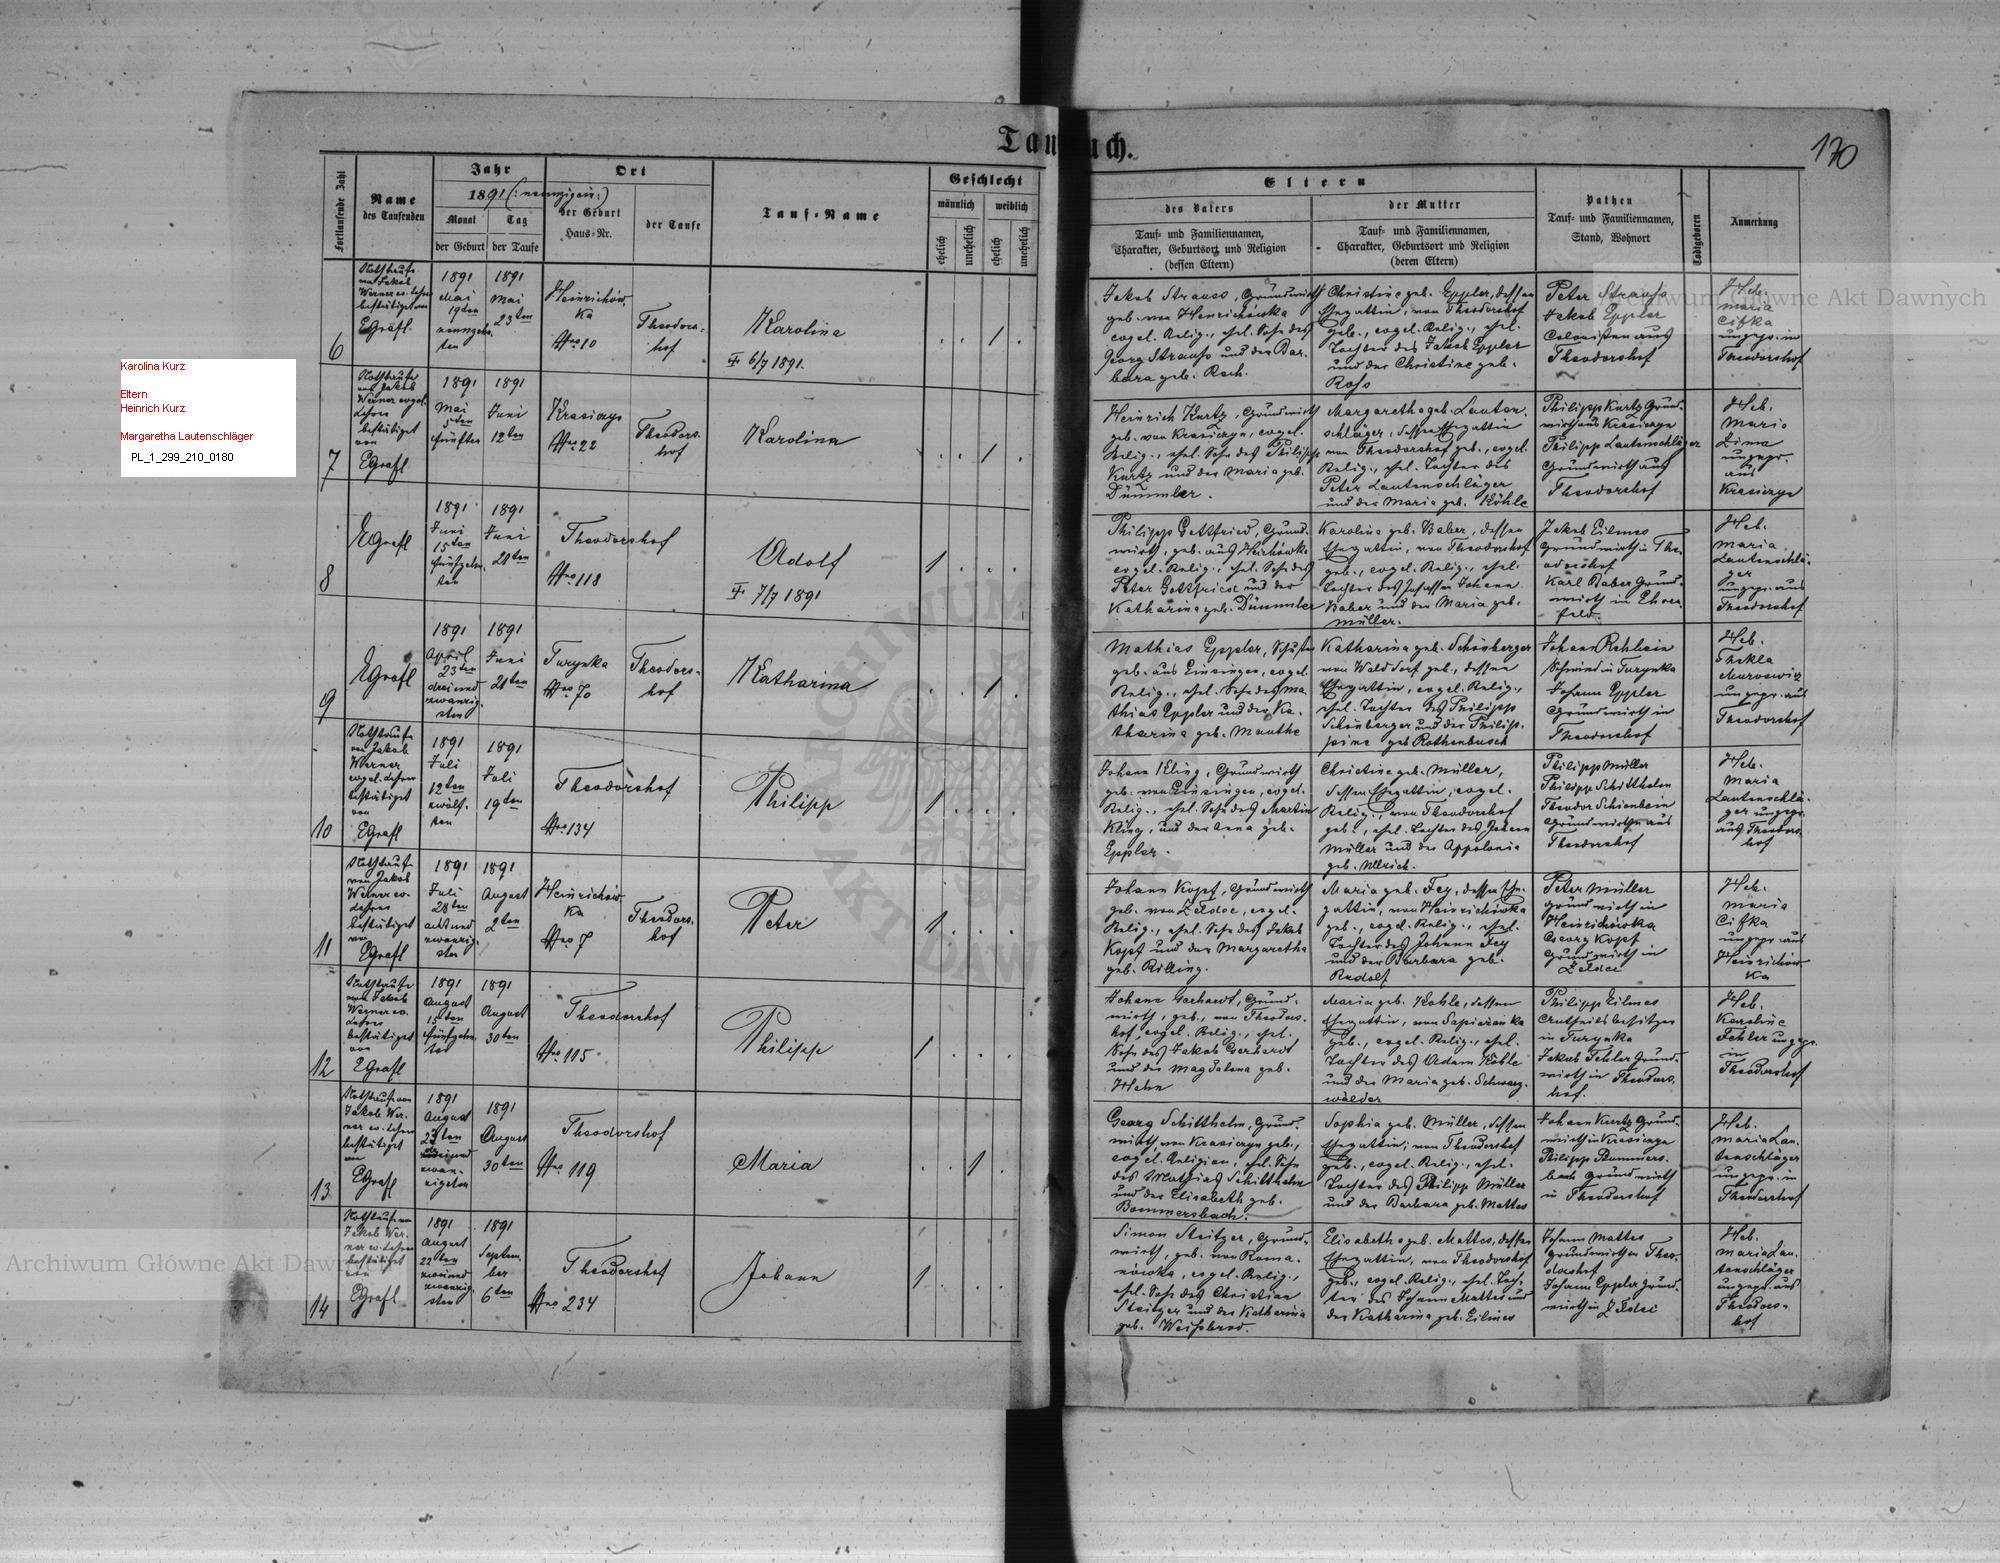 Taufbuch.
170
Karolina Kurz
Eltern
Heinrich Kurz
Margaretha Lautenschläger
PL_1_299_210_0180
Archiwum Główne Akt Dawnych
Archiwum Główne Akt Dawnych
Fortlaufende Zahl
Name
des Taufenden
Jahr
1891 (:neunzigein:)
Monat
der Geburt
Tag
der Taufe
Ort
der Geburt
Haus-Nr.
der Taufe
Tauf-Name
Geschlecht
männlich
weiblich
ehelich
unehelich
ehelich
unehelich
Eltern
des Vaters
Tauf- und Familiennamen,
Charakter, Geburtsort und Religion
(dessen Eltern)
der Mutter
Tauf- und Familiennamen,
Charakter, Geburtsort und Religion
(deren Eltern)
Pathen
Tauf- und Familiennamen,
Stand, Wohnort
Todtgeboren
Anmerkung
6
Nothtaufe
von Jakob
Werner ev. Lehrer
bestätigt von
EGrafl.
1891
Mai
19ten
neunzehn-
ten
1891
Mai
23ten
Heinrichów-
ka
Nro 10
Theodors-
hof
Karolina
6/7 1891.
1
Jakob Strauss, Grundwirth
geb. von Heinrichówka
evgel. Relig., ehel. Sohn des
Georg Strauss und der Bar-
bara geb. Roch.
Christine geb. Eppler, dessen
Ehegattin, von Theodorshof
geb., evgel. Relig., ehel.
Tochter des Jakob Eppler
und der Christine geb.
Ross
Peter Strauss
Jakob Eppler
Colonisten aus
Theodorshof
Heb.
Maria
Cifka
ungepr. in
Theodorshof
7
Nothtaufe
von Jakob
Werner evgel.
Lehrer
bestätiget
von
EGrafl
1891
Mai
5ten
fünften
1891
Juni
12ten
Krasiczyn
Nro 22
Theodors-
hof
Karolina
1
Heinrich Kurtz, Grundwirth
geb. von Krasiczyn, evgel.
Relig., ehel. Sohn des Philipp
Kurtz und der Maria geb.
Dümmler.
Margaretha geb. Lauten-
schläger, dessen Ehegattin
von Theodorshof geb., evgel.
Relig., ehel. Tochter des
Peter Lautenschläger
und der Maria geb. Köhle
Philipp Kurtz Grund-
wirth aus Krasiczyn
Philipp Lautenschläger
Grundwirth aus
Theodorshof
Heb.
Maria
Zima
ungepr.
aus
Krasiczyn
8
EGrafl
1891
Juni
15ten
fünfzehn-
ten
1891
Juni
21ten
Theodorshof
Nro 118
Adolf
7/7 1891
1
Philipp Gottfried, Grund-
wirth, geb. aus
evgel. Relig., ehel. Sohn des
Peter Gottfried und der
Katharina geb. Dümmler
Karolina geb. Baber, dessen
Ehegattin, von Theodorshof
geb., evgel. Relig., ehel.
Tochter des Johann
Baber und der Maria geb.
Müller.
Jakob Eilmes
Grundwirth in The-
odorshof
Karl Baber Grund-
wirth in Ehren-
feld.
Heb.
Maria
Lautenschlä-
ger
ungepr. aus
Theodorshof
9
EGrafl
1891
April
23ten
drei und
zwanzig-
sten
1891
Juni
21ten
Turynka
Nro 70
Theodors-
hof
Katharina
1
Mathias Eppler, Schuster
geb. aus Einsingen, evgel.
Relig., ehel. Sohn des Ma-
thias Eppler und der Ka-
tharina geb. Manthe
Katharina geb. Schönberger
von Walddorf geb., dessen
Ehegattin, evgel. Relig.,
ehel. Tochter des Philipp
Schönberger und der Philip-
pine geb Rothenbusch
Johann Rehlein
Schmied in Turynka
Johann Eppler
Grundwirth in
Theodorshof
Heb.
Thekla
ungepr. aus
Theodorshof
10
Nothtaufe
von Jakob
Werner
evgel. Lehrer
bestätiget
von
EGrafl
1891
Juli
12ten
zwölf-
ten
1891
Juli
19ten
Theodorshof
Nro 134
Philipp
1
Johann Kling, Grundwirth
geb. von Einsingen, evgel.
Relig., ehel. Sohn des Martin
Kling, und der Anna geb.
Eppler.
Christine geb. Müller,
dessen Ehegattin, evgel.
Relig., von Theodorshof
geb., ehel. Tochter des Johann
Müller und der Appolonia
geb. Ullrich.
Philipp Müller
Philipp Schitthelm
Theodor Schienbein
Grundwirthe aus
Theodorshof
Heb.
Maria
Lautenschlä-
ger ungepr.
aus Theodors-
hof
11
Nothtaufe
von Jakob
Werner ev-
Lehrer
bestätiget
von
EGrafl
1891
Juli
28ten
acht und
zwanzig-
sten
1891
August
2ten
Heinrichów-
ka
Nro 7
Theodors-
hof
Peter
1
Johann Kopf, Grundwirth
geb. von Zeldec, evgel.
Relig., ehel. Sohn des Jakob
Kopf und der Margaretha
geb. Rilling.
Maria geb. Fey, dessen Ehe-
gattin, von Heinrichówka
geb., evgel. Relig., ehel.
Tochter des Johann Fey
und der Barbara geb.
Rudolf
Peter Müller
Grundwirth in
Heinrichówka
Georg Kopf
Grundwirth in
Zeldec
Heb.
Maria
Cifka
ungepr. aus
Heinrichów-
ka
12
Nothtaufe
von Jakob
Werner ev.
Lehrer
bestätiget
von
EGrafl
1891
August
15ten
fünfzehn-
ten
1891
August
30ten
Theodorshof
Nro 115
Philipp
1
Johann Gerhardt, Grund-
wirth, geb. von Theodors-
hof, evgel. Relig., ehel.
Sohn des Jakob Gerhardt
und der Magdalena geb.
Hehn
Maria geb. Kohle, dessen
Ehegattin, von Sapieżanka
geb., evgel. Relig., ehel.
Tochter des Adam Kohle
und der Maria geb. Schwarz-
wälder
Philipp Eilmes
Antheilsbesitzer
in Turynka
Jakob Fehler Grund-
wirth in Theodors-
hof.
Heb.
Karoline
Fehler ungepr.
in
Theodorshof
13
Nothtaufe von
Jakob Wer-
ner ev. Lehrer
bestätiget
von
EGrafl
1891
August
zwan-
zigsten
1891
August
30ten
Theodorshof
Nro 119
Maria
1
Georg Schitthelm, Grund-
wirth von Krasiczyn geb.,
evgel. Religion, ehel. Sohn
des Mathias Schitthelm
und der Elisabeth geb.
Bommersbach.
Sophia geb. Müller, dessen
Ehegattin, von Theodorshof
geb., evgel. Relig., ehel.
Tochter des Philipp Müller
und der Barbara geb. Mattes
Johann Kurtz Grund-
wirth in Krasiczyn
Philipp Bommers-
bach Grundwirth
in Theodorshof
Heb.
Maria Lau-
tenschläger
ungepr. in
Theodorshof
14
Nothtaufe von
Jakob Wer-
ner ev. Lehrer
bestätiget
von
EGrafl
1891
August
22ten
zwei und
zwanzig-
sten
1891
Septem-
ber
6ten
Theodorshof
Nro 234
Johann
1
Simon Steitzer, Grund-
wirth, geb. von Roma-
nówka, evgel. Relig.,
ehel. Sohn des Christian
Steitzer und der Katharina
geb. Weissbrod.
Elisabetha geb. Mattes, dessen
Ehegattin, von Theodorshof
geb., evgel. Relig., ehel. Toch-
ter des Johann Mattes und
der Katharina geb. Eilmes
Johann Mattes
Grundwirth in Theo-
dorshof
Johann Eppler Grund-
wirth in Zeldec
Heb.
Maria Lau-
tenschläger
ungepr. aus
Theodors-
hof